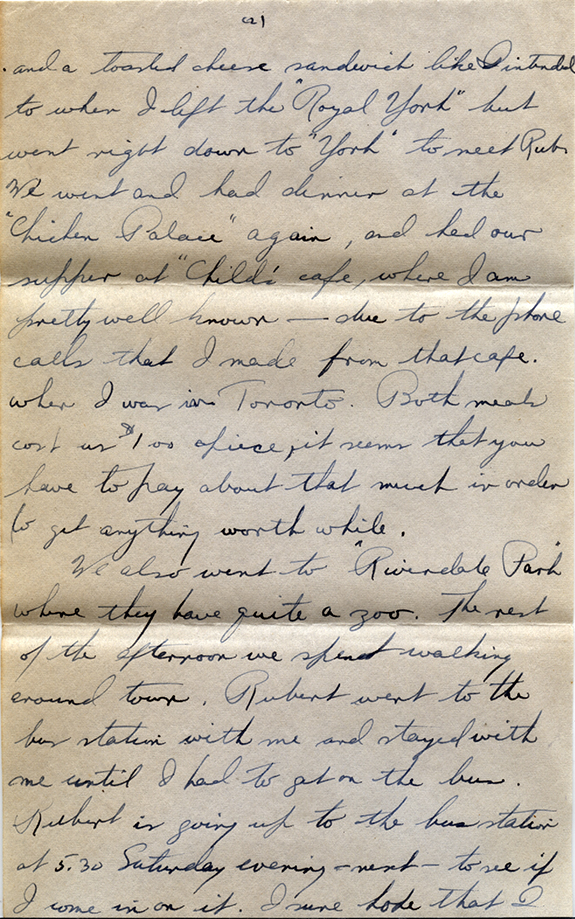 (2)
and a toasted cheese sandwich like I intended
to when I left the "Royal York" but
went right down to "York" to meet Rub.
We went and had dinner at the
"Chicken Palace" again, and had our
supper at "Child's cafe, where I am
pretty well known — due to the phone
calls that I made from that cafe.
when I was in Toronto. Both meals
cost us $1 00 apiece, it seems that you
have to pay about that much in order
to get anything worth while.
We also went to "Riverdale Park"
where they have quite a zoo. The rest
of the afternoon we spend walking
around town. Rubert went to the
bus station with me and stayed with
me until I had to get on the bus.
Rubert is going up to the bus station
at 5.30 Saturday evening - next - to see if
I come in on it. I sure hope that I